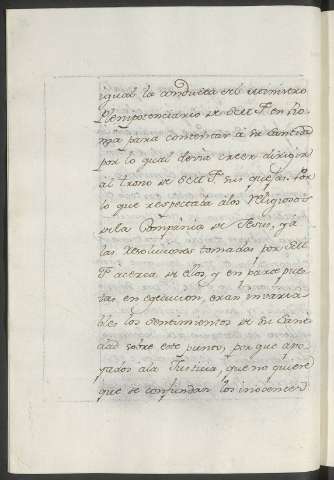 igual la conducta del Ministro
Plenipotenciario de S.M.F. en Ro-
ma para contentar à Su Santidad
por lo qual devia creer dirigir
al trono de S.M.F. sus quejas. Por
lo que respectaba alos Religiosos
de la Compañia de Jesus, y a
las resoluciones tomadas por S.M.
F. acerca de ellos, y en parte pues-
tas en egecucion, eran invaria-
bles los sentimientos de Su Santi-
dad sobre este punto, por que apo-
yados ala Justicia, que no quiere
que se confundan los inocentes